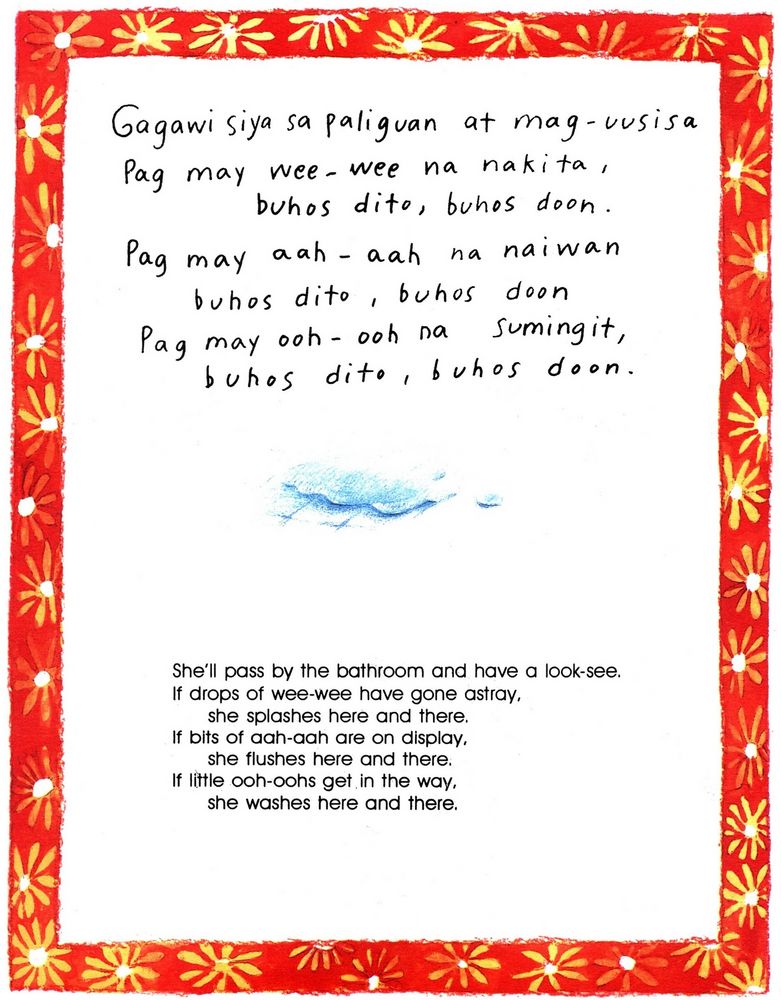 Gagawi siya sa paliguan at mag-uusisa
Pag may wee-wee na nakita,
buhos dito, buhos doon.
Pag may aah-aah na naiwan
buhos dito, buhos doon
Pag may ooh-ooh na sumingit,
buhos dito, buhos doon.
She'll pass by the bathroom and have a look-see.
If drops of wee-wee have gone astray,
she splashes here and there.
If bits of aah-aah are on display,
she flushes here and there.
If little ooh-oohs get in the way,
she washes here and there.